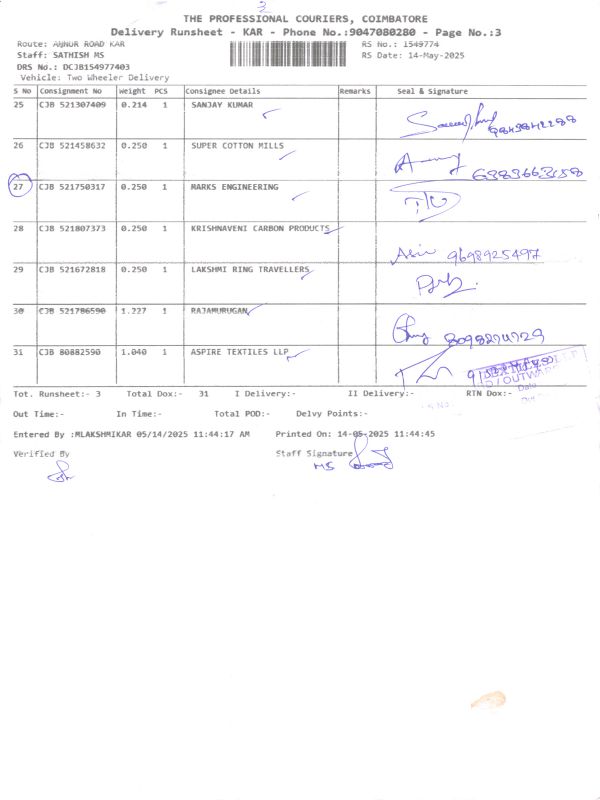 THE PROFESSIONAL COURIERS, COIMBATORE
Delivery Runsheet - KAR - Phone No.:9047080280 - Page No.:3
Route: AJNUR ROAD KAR
RS No.: 1549774
Staff: SATHISH MS
RS Date: 14-May-2025
DRS No.: DCJB154977403
Vehicle: Two Wheeler Delivery
S No Consignment No Weight PCS Consignee Details Remarks Seal & Signature
25 CJB 521307409 0.214 1 SANJAY KUMAR
26 CJB 521458632 0.250 1 SUPER COTTON MILLS
6383663158
27 CJB 521750317 0.250 1 MARKS ENGINEERING
28 CJB 521807373 0.250 1 KRISHNAVENI CARBON PRODUCTS
9698925497
29 CJB 521672818 0.250 1 LAKSHMI RING TRAVELLERS
30 CJB 521786590 1.227 1 RAJAMURUGAN
31 CJB 80882590 1.040 1 ASPIRE TEXTILES LLP
Tot. Runsheet:- 3 Total Dox:- 31 I Delivery:- II Delivery:- RTN Dox:-
Out Time:- In Time:- Total POD:- Delvy Points:-
Entered By :MLAKSHMIKAR 05/14/2025 11:44:17 AM Printed On: 14-05-2025 11:44:45
Verified By Staff Signature
MS